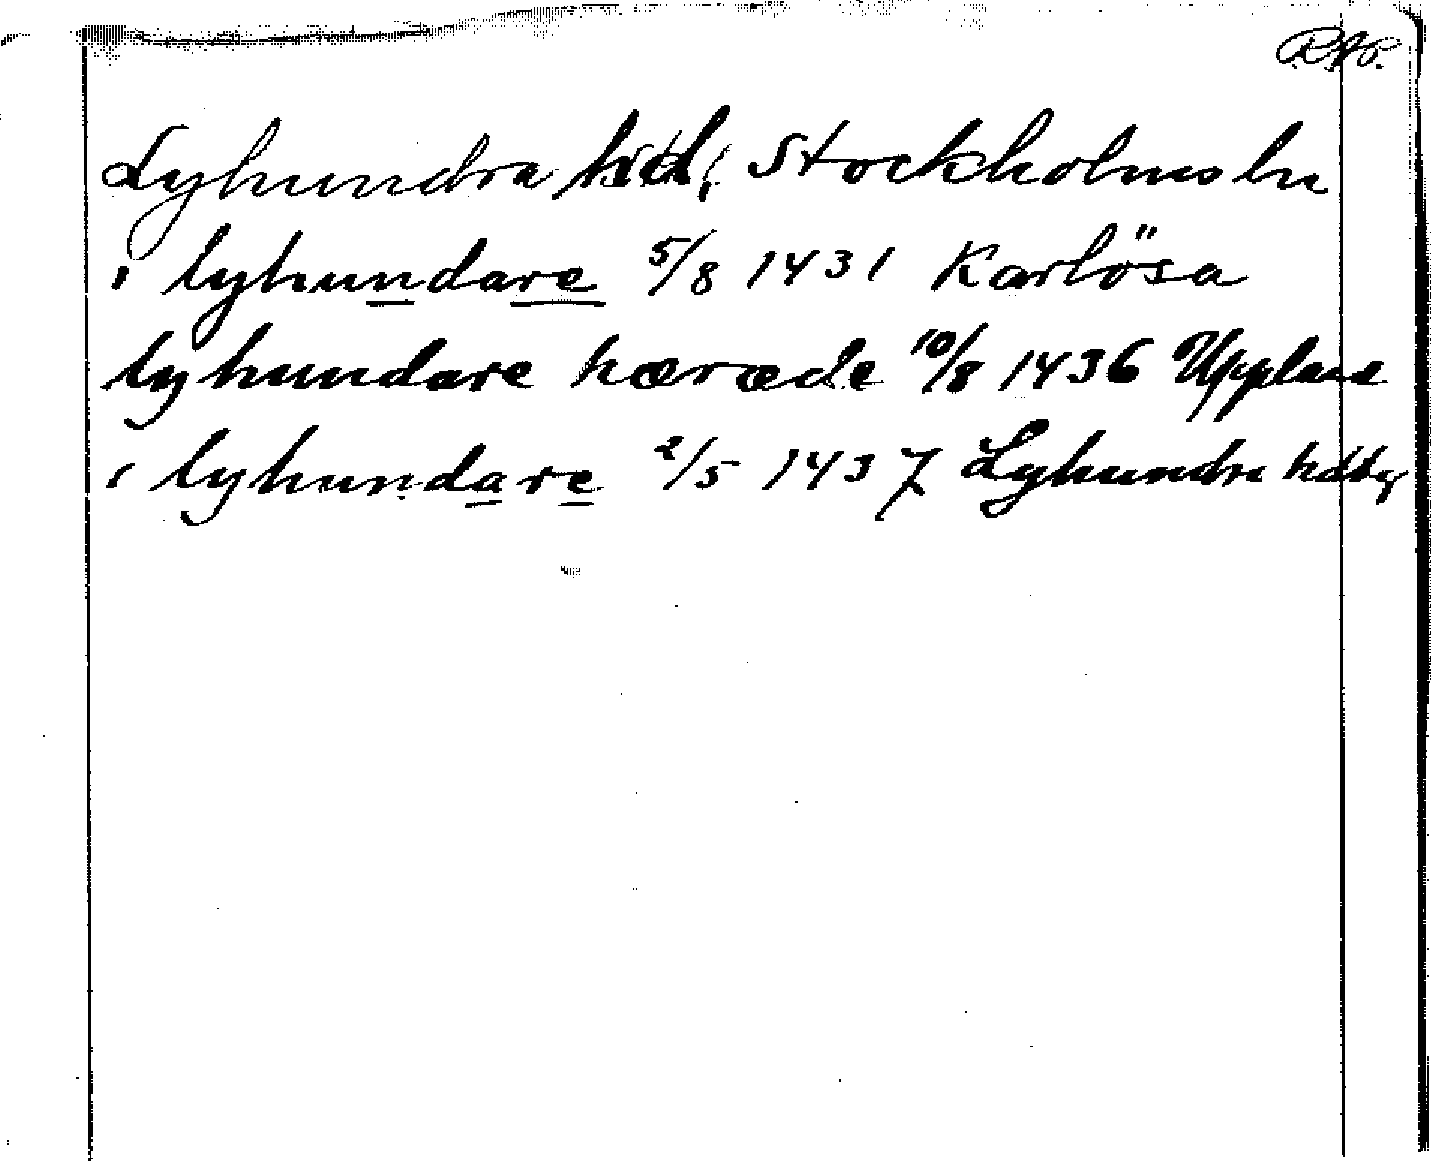 RAP.
Lyhundra hd, Stockholms ln
i lyhundare 5/8 1431 Karlösa
lyhundare hæræde 10/8 1436 Uppland
i lyhundare 2/5 1437 Lyhundra hd